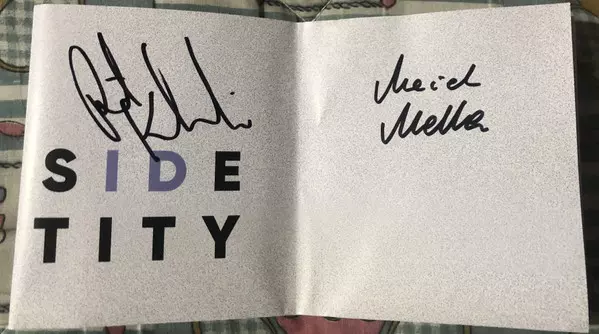 SIDE
TITY
Meich
Mella